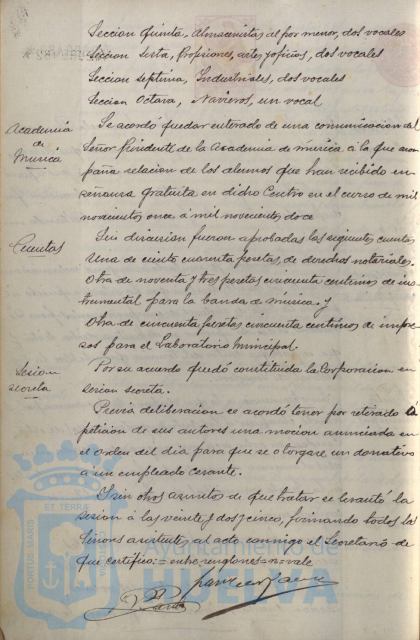 Seccion Quinta, Almacenistas al por menor, dos vocales
Seccion Sexta, Profesiones, artes y oficios, dos vocales
Seccion Septima, Industriales, dos vocales
Seccion Octava, Navieros, un vocal
Academia de Musica
Se acordó quedar enterado de una comunicacion del
Señor Presidente de la Academia de musica á la que acom
paña relacion de los alumnos que han recibido en
señansa gratuita en dicho Centro en el curso de mil
novecientos once á mil novecientos doce
Cuentas
Sin discusion fueron aprobadas las siguientes cuentas
Una de ciento cuarenta pesetas, de derechos notariales.
Otra de noventa y tres pesetas cincuenta centimos de ins
trumental para la banda de musica. y
Otra de cincuenta pesetas cincuenta centimos de impre
sos para el Laboratorio Municipal.
Sesion secreta
Por su acuerdo quedó constituida la Corporacion en
sesion secreta.
Previa deliberacion se acordó tener por retirada á
peticion de sus autores una mocion anunciada en
el orden del dia para que se otorgase un donativo
á un empleado cesante.
Y sin otros asuntos de que tratar se levantó la
sesion á las veinte y dos y cinco, firmando todos los
Señores asistentes al acto conmigo el Secretario de
que certifico:= entre renglones=n=vale
PORTUS MARIS
ET TERRAE
Ayuntamiento de
HUELVA